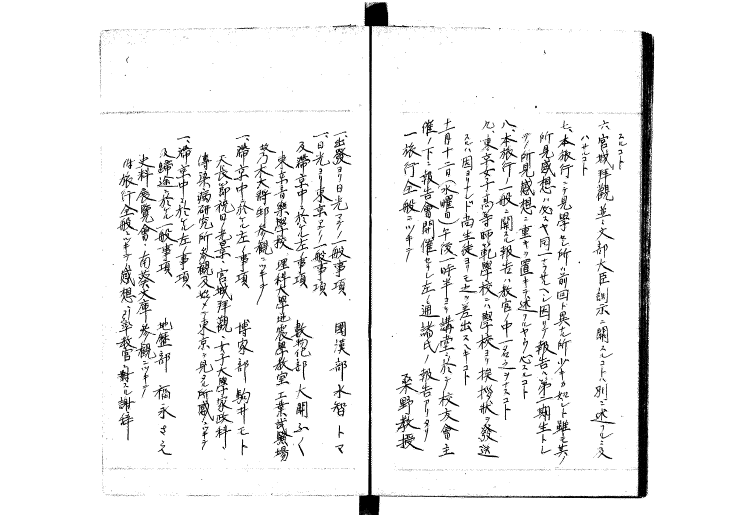 スルコト
六、宮城拝觀並ニ文部大臣訓示ニ關スルコトハ別ニ述フルニ及
ハサルコト
七、本旅行ニテ見學セル所ハ前回ト異ル所少キカ如シト雖モ其ノ
所見感想ハ必スモ同一ナラサルヘシ因リテ報告ハ第二期生トシ
テノ所見感想ニ重キヲ置キテ述フルヤウ心スルコト
八、本旅行一般ニ關スル報告ハ教官ノ中一名之ヲナスコト
九、東京女子高等師範學校ニハ學校ヨリ挨拶状ヲ發送
スルハ固ヨリナレド尚生徒ヨリモ之ヲ差出スヘキコト
十一月十二日(水曜日)午後一時半ヨリ講堂ニ於テ校友會主
催ノ下ニ報告會開催セラレ左ノ通諸氏ノ報告アリタリ
一旅行全般ニツキテ 桑野教授
一、出發ヨリ日光マテノ一般事項 國漢部 水智トマ
一、日光ヨリ東京マテノ一般事項
及滞京中ニ於ケル左ノ事項 數物化部 大開ふく
東京音樂學校 理科大學地震學教室 工業試驗場
故乃木大將邸参觀ニツキテ
一、滞京中ニ於ケル左ノ事項 博家部 駒井モト
天長節祝日ノ光景、宮城拝觀、女子大學家政科、
傳染病研究所参觀及始メテ東京ヲ見タル所感ニツキテ
一、滞京中ニ於ケル左ノ事項
及歸途ニ於ケル一般事項 地歴部 福永きえ
史料展覽會、南葵文庫参觀ニツキテ
付旅行全般ニツキテノ感想、引率教官ニ對スル謝辞